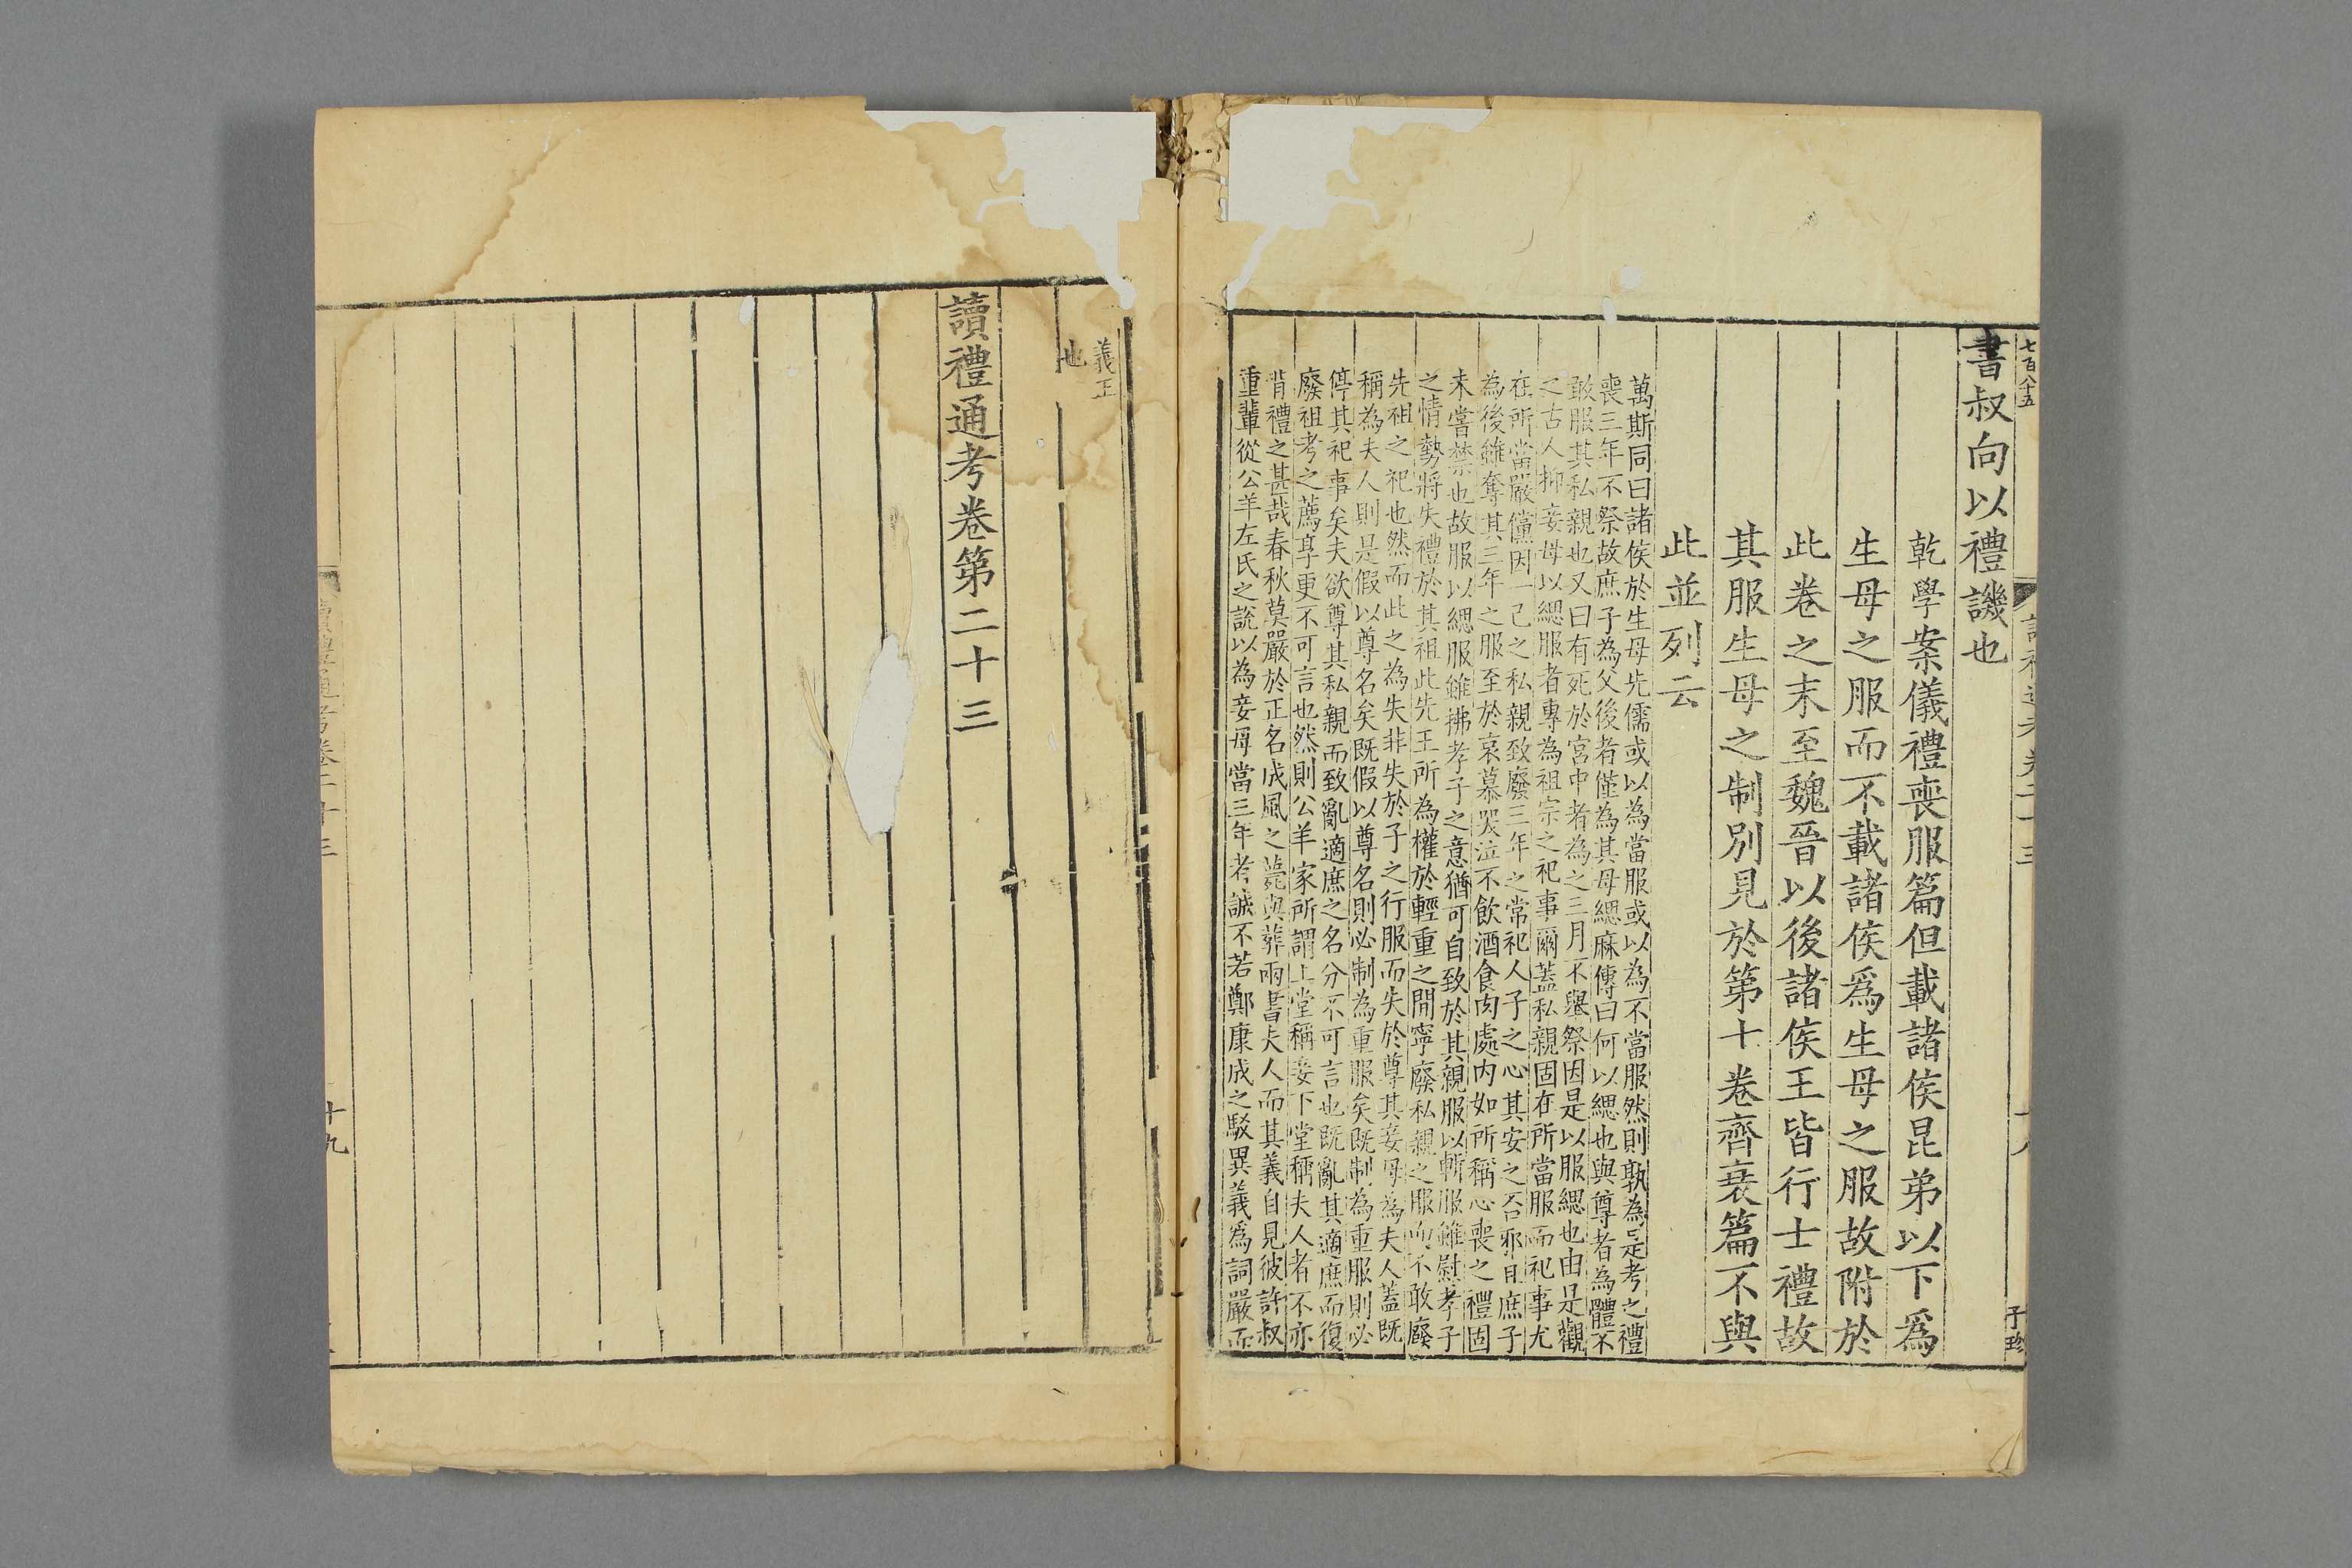 七百八十五
書叔向以禮譏也
乾學案儀禮喪服篇但載諸侯昆弟以下爲
生母之服而不載諸侯爲生母之服故附於
此卷之末至魏晉以後諸侯王皆行士禮故
其服生母之制別見於第十卷齊衰篇不與
此並列云
萬斯同曰諸侯於生母先儒或以為當服或以為不當服然則孰為是考之禮
喪三年不祭故庶子為父後者僅為其母緦麻傳曰何以緦也與尊者為體不
敢服其私親也又曰有死於宮中者為之三月不舉祭因是以服緦也由是觀
之古人抑妾母以緦服者專為祖宗之祀事爾蓋私親固在所當服而祀事尤
在所當嚴儻因一己之私親致廢三年之常祀人子之心其安之否邪且庶子
為後雖奪其三年之服至於哀慕哭泣不飲酒食肉處內如所稱心喪之禮固
未嘗禁也故服以緦服雖拂孝子之意猶可自致於其親服以斬服雖慰孝子
之情勢將失禮於其祖此先王所為權於輕重之間寧廢私親之服而不敢廢
先祖之祀也然而此之為失非失於子之行服而失於尊其妾母為夫人蓋既
稱為夫人則是假以尊名矣既假以尊名則必制為重服矣既制為重服則必
停其祀事矣夫欲尊其私親而致亂適庶之名分不可言也既亂其適庶而復
廢祖考之薦享更不可言也然則公羊家所謂上堂稱妾下堂稱夫人者不亦
背禮之甚哉春秋莫嚴於正名成風之薨與葬兩書夫人而其義自見彼許叔
重輩從公羊左氏之說以為妾母當三年者誠不若鄭康成之駁異義爲詞嚴而
子珍
義正
也
讀禮通考卷第二十三
讀禮通考卷二十三
十九